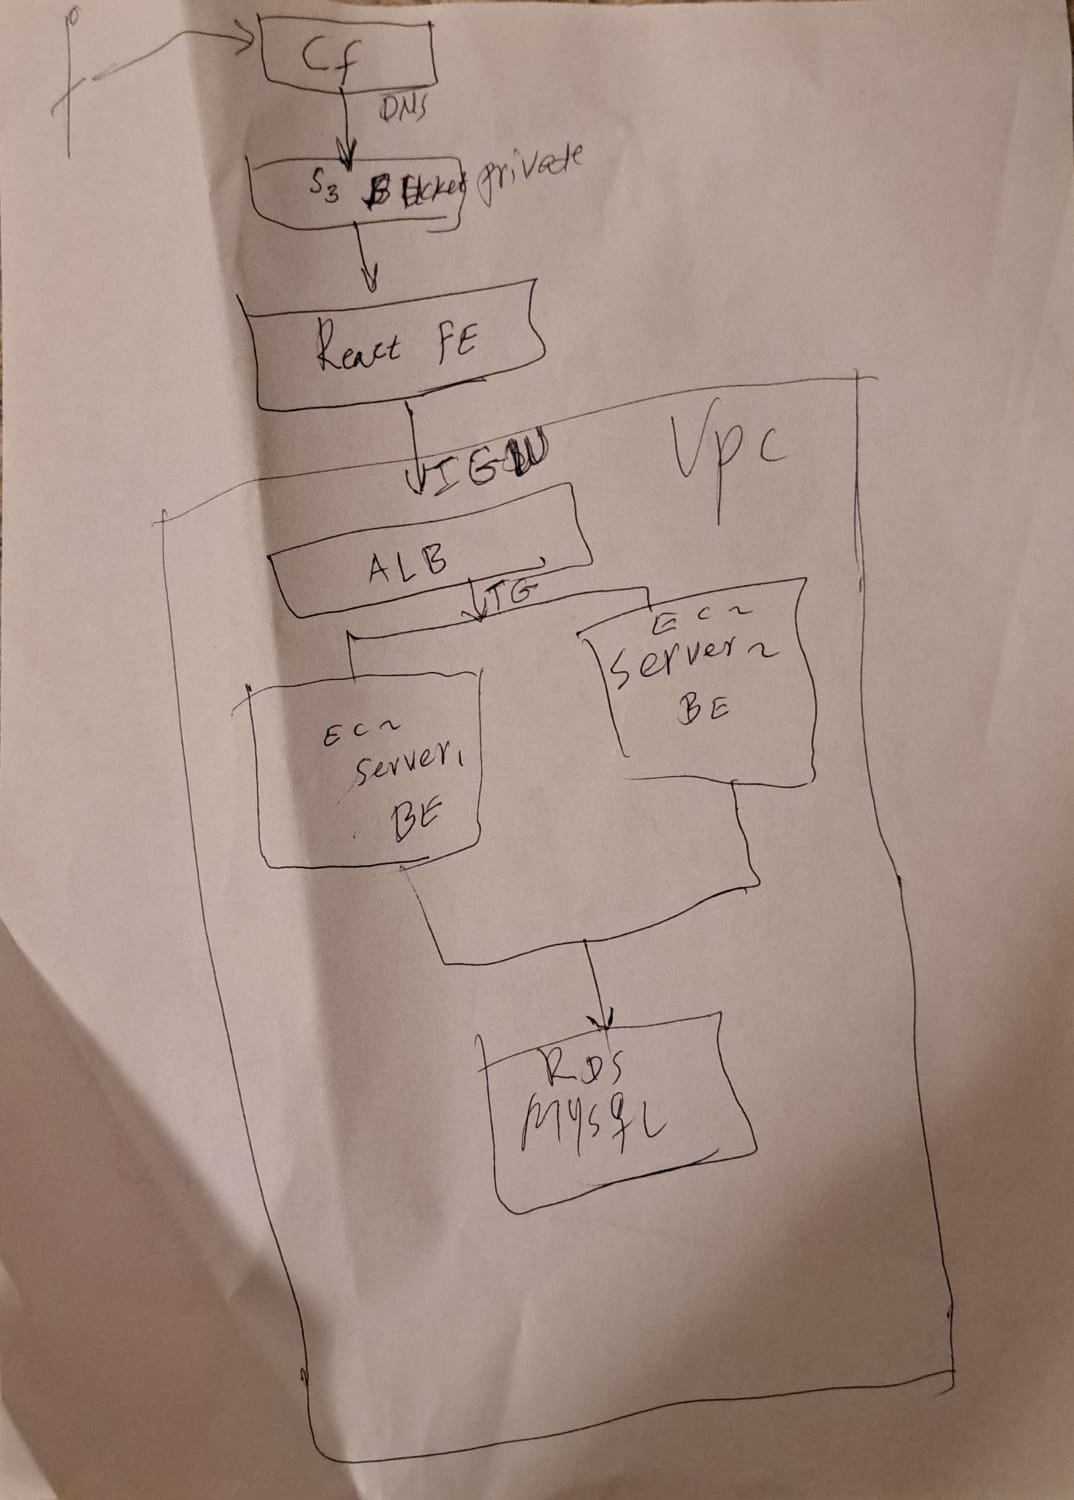 Cf
DNS
S3 Bucket private
React FE
IGW
Vpc
ALB
TG
EC2
Server2
BE
EC2
Server1
BE
RDS
MySQL